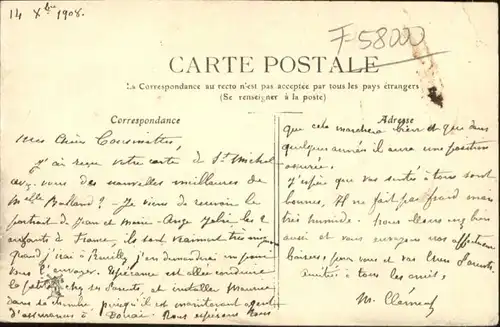 14 Xbre 1908.
F-58000
CARTE POSTALE
La Correspondance au recto n'est pas acceptée par tous les pays étrangers
(Se renseigner à la poste)
Correspondance
Adresse
Mes chers
J'ai reçu votre carte de St Michel
avez-vous des nouvelles meilleures de
Melle ? - Je viens de recevoir le
portrait de Jean et Marie-Ange les 2
enfants à France, ils sont vraiment très
quand j'irai à j'en demanderai un pour
vous l'envoyer. Espérance est allée conduire
la chez ses Parents, et installer Maurice
dans sa chambre puisqu'il est maintenant agent
d'assurances à Douai. Nous espérons tous
que cela marchera bien et que dans
quelques années il aura une position
assurée.
J'espère que vos santés à tous sont
bonnes, Il ne fait pas froid mais
très humide. Nous allons bien
aussi et vous envoyons nos affectueux
baisers pour vous et vos Parents,
Amitiés à tous les amis.
M. Clément